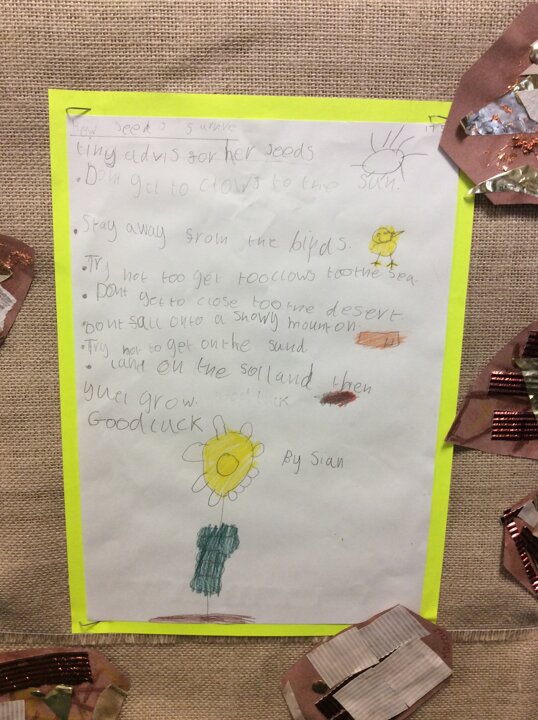 How seeds surive
tiny advis for her seeds
• Dont get to clows to the sun.
• Stay away from the birds.
• Try not too get tooclows toothe sea.
• Dont get to close toothe desert.
Dont fall onto a snowy mounton.
• Try not to get on the sand
• land on the soll and then
yuel grow.
Good luck
By Sian